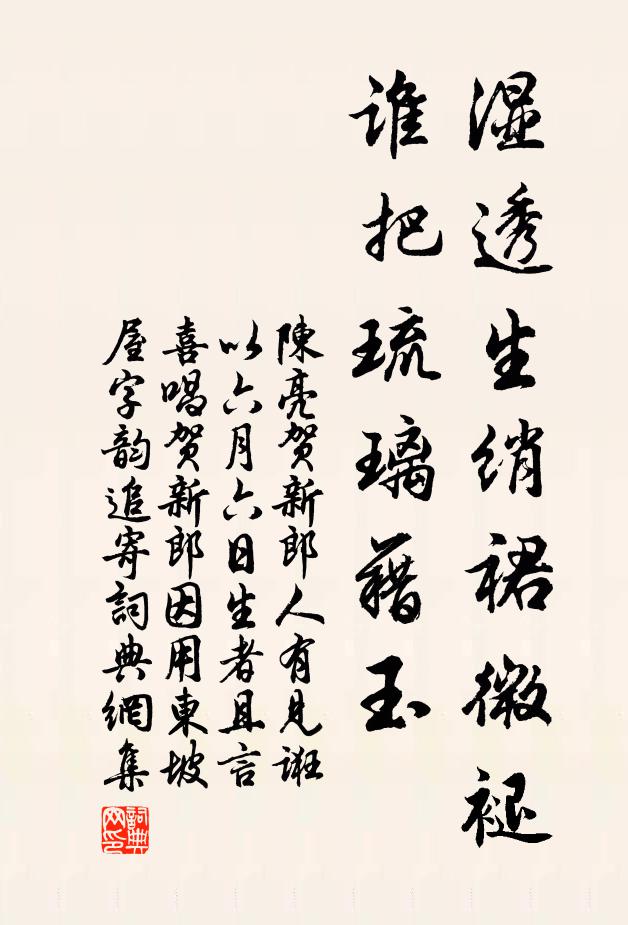 湿透生绡裙微褪
谁把琉璃藉玉
陳亮贺新郎人有見誑
以六月六日生者且言
喜唱贺新郎因用東坡
屋字韵追寄詞典網集
詞典網印